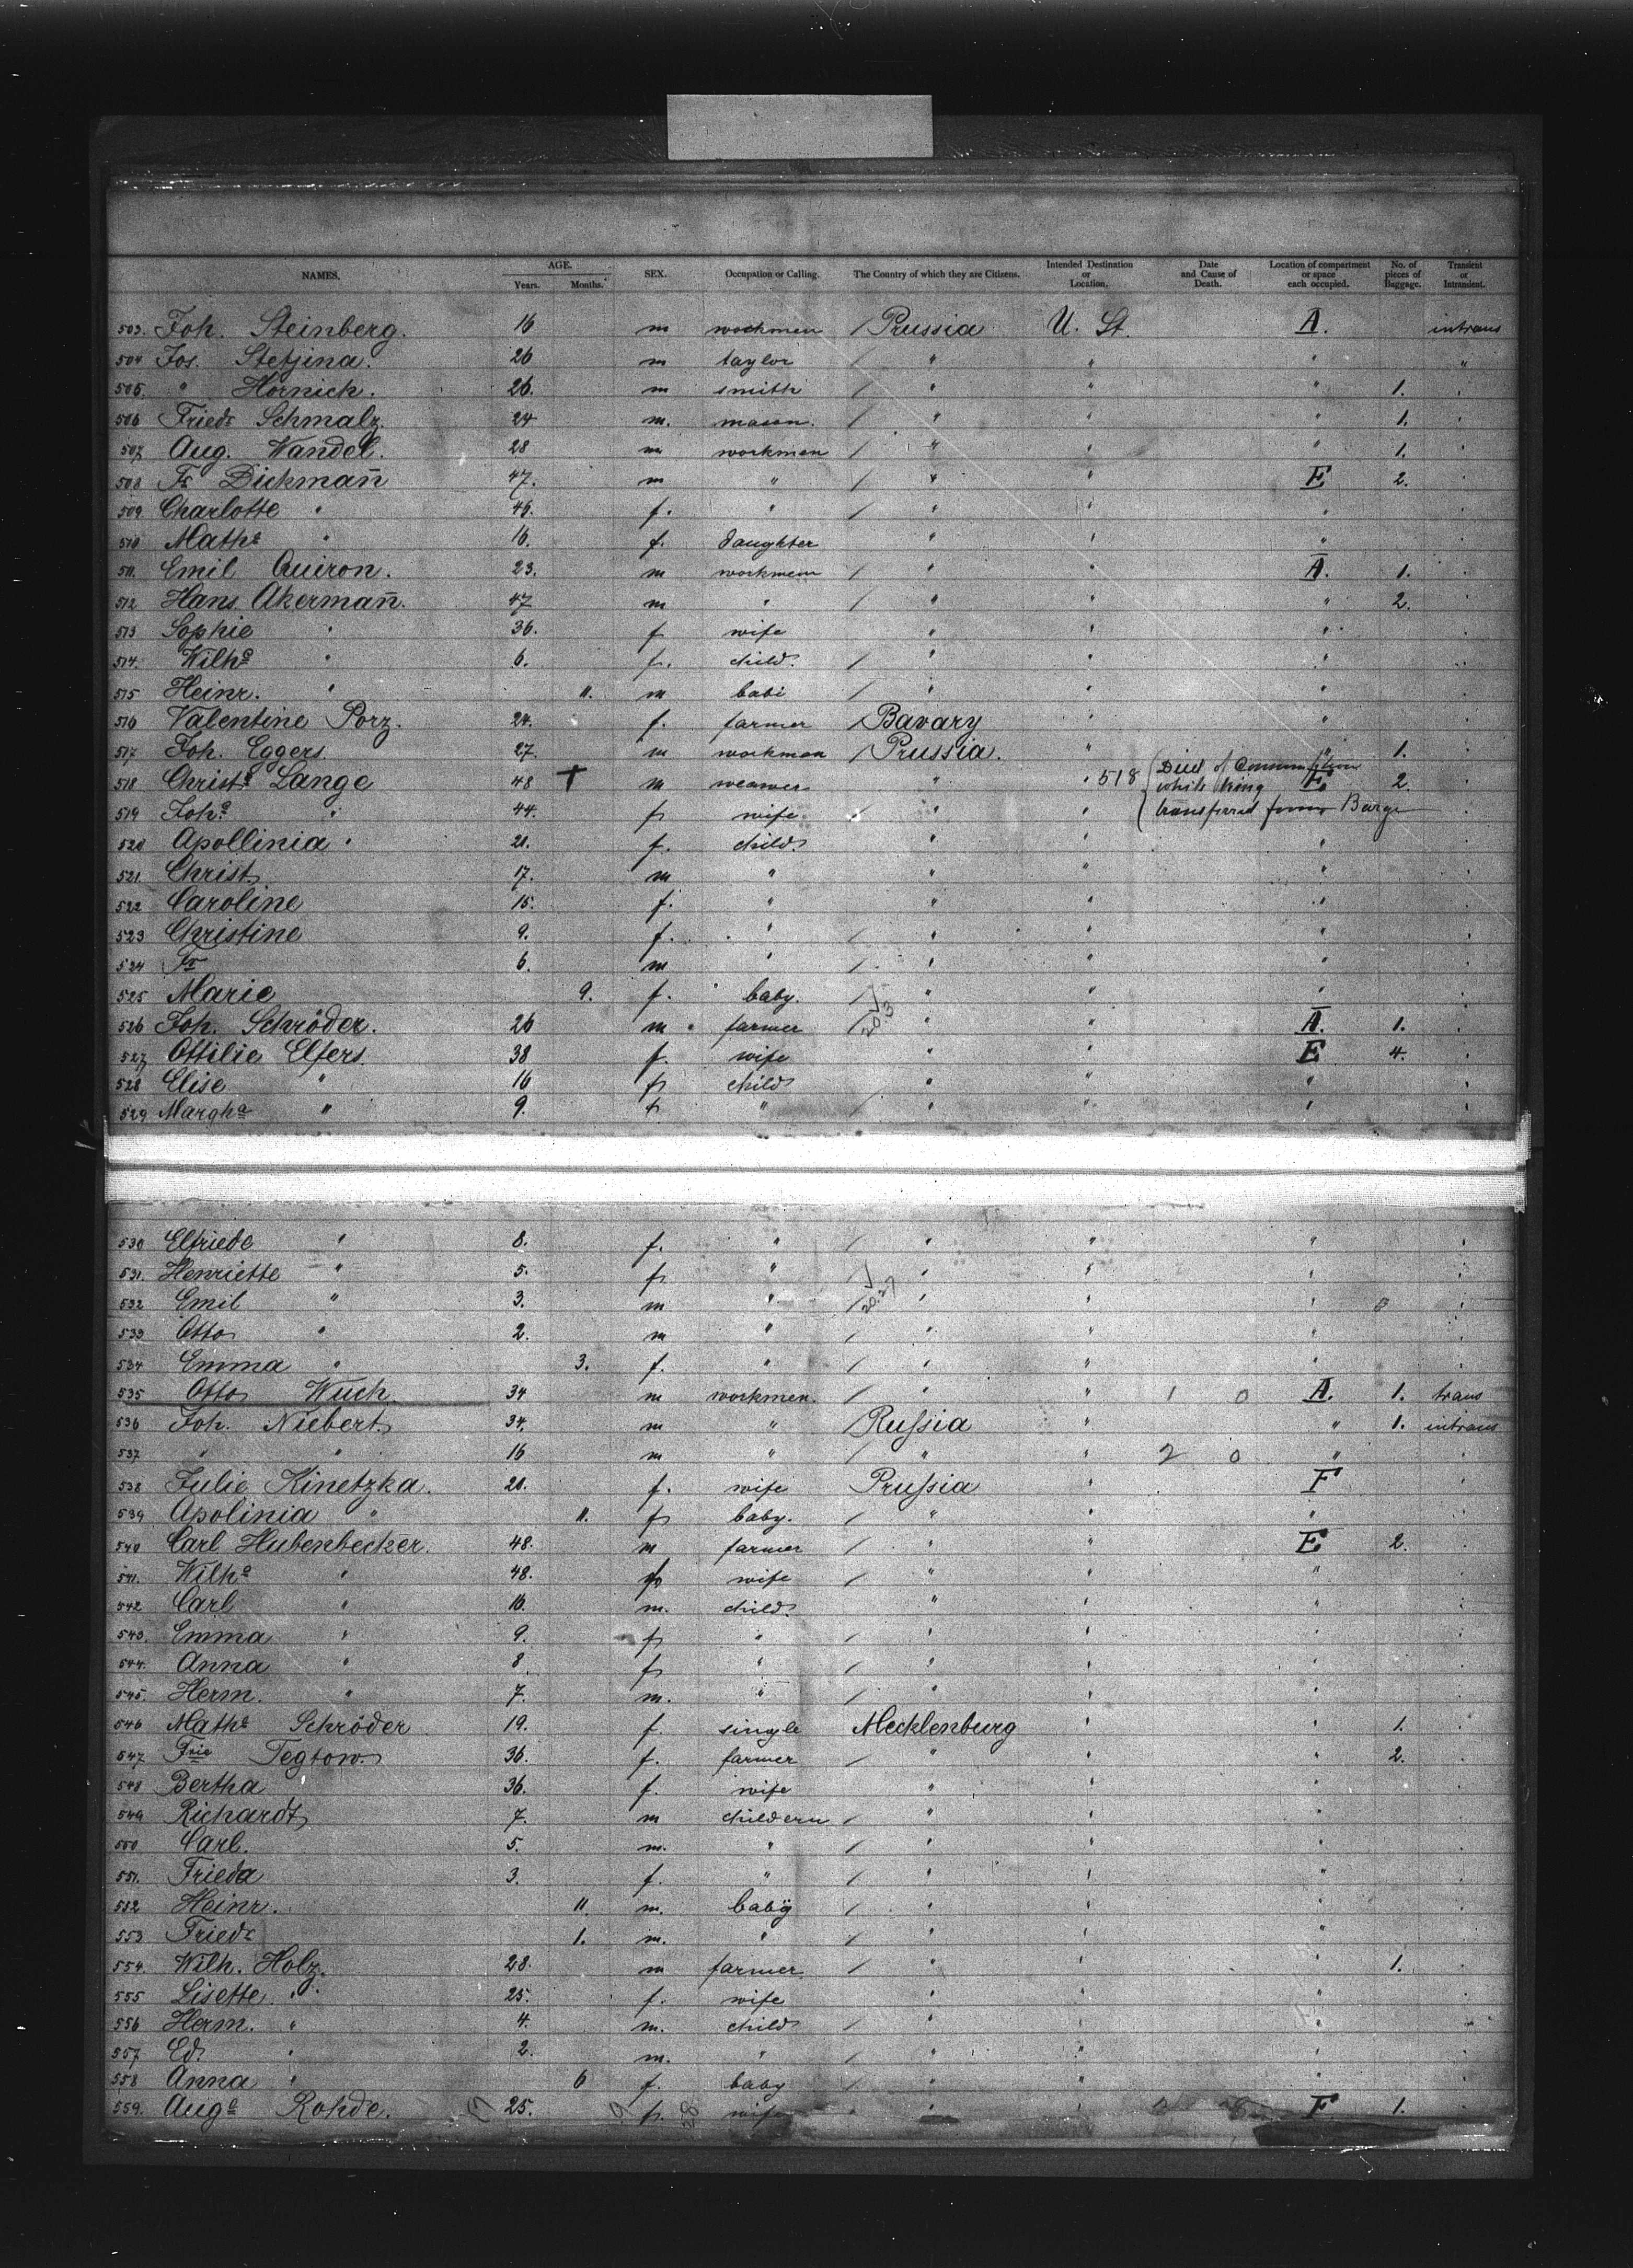 NAMES. AGE. Years. Months. SEX. Occupation or Calling. The Country of which they are Citizens. Intended Destination or Location. Date and Cause of Death. Location of compartment or space each occupied. No. of pieces of Baggage. Transient or Intransient.
503. Joh. Steinberg. 16 m workmen / Prussia U. St. A. intrans
504 Jos. Stefjina. 26 m taylor / " " " "
505. " Hornick. 26. m smith / " " " 1. "
506 Friedr Schmalz. 24 m. mason. / " " " 1. "
507 Aug. Wandel. 28 m workmen / " " " 1. "
508 Fr. Dickman̄ 47. m " / " " E 2. "
509. Charlotte " 46. f. " / " " " "
510 Mathe " 16. f. daughter " " " "
511. Emil Quiron. 23. m workmen / " " A. 1. "
512 Hans Akerman̄. 47 m " / " " " 2. "
513 Sophie " 36. f wife " " " "
514. Wilhe " 6. f. child. / " " " "
515 Heinr. " 11. m babi / " " " "
516 Valentine Porz. 24. f. farmer / Bavary " " "
517 Joh. Eggers. 27. m workmen / Prussia. " " 1. "
518 Christ. Lange 48 + m weawer " " 518 Died of Consumption while being transferred from Barge E. 2. "
519 Johe " 44. f wife " " "
520 Apollinia " 21. f. child. " " " "
521. Christ 17. m " " " " "
522 Caroline 15. f. " " " " "
523 Christine 9. f. " / " " " "
524 Fr 6. m " / " " " "
525 Marie 9. f. baby. / " " " "
526 Joh. Schröder. 26 m farmer / 20.13 " " A. 1. "
527 Ottilie Elfers. 38 f. wife " " E 4. "
528 Elise " 16 f child " " " "
529 Marghe " 9. f " / " " " "
530 Elfriede " 8. f. " / " " " "
531. Henriette " 5. f " / " " " "
532 Emil " 3. m " / 20.27 " " " "
533 Otto " 2. m " / " " " "
534 Emma " 3. f. " / " " " "
535 Otto Wuch. 34 m workmen. / " " 1 0 A. 1. trans
536 Joh. Niebert. 34. m " Russia " " 1. intrans
537 " " 16 m " / " " 2 0 " "
538 Julie Kinetzka. 20. f. wife Prussia " F "
539 Apolinia " 11. f baby. / " " " "
540 Carl Hubenbecker. 48. m farmer / " " E 2. "
541. Wilhe " 48. f wife / " " " "
542 Carl " 16. m. child. " " " "
543. Emma " 9. f " / " " " "
544. Anna " 8 f " / " " " "
545. Herm. " 7. m. " / " " " "
546 Mathe Schröder 19. f. single Mecklenburg " " 1. "
547 Frie Tegtow 36. f. farmer / " " " 2. "
548 Bertha 36. f. wife " " " "
549 Richardt 7. m childern / " " " "
550 Carl. 5. m. " / " " " "
551. Frieda 3. f. " / " " " "
552 Heinr. 11. m. babÿ / " " " "
553 Friedr 1. m. " / " " " "
554. Wilh. Holz. 28. m farmer / " " " 1. "
555 Lisette. " 25. f. wife " " " "
556 Herm. " 4. m. child / " " " "
557 Ed. " 2. m. " / " " " "
558 Anna " 6 f. baby / " " " "
559. Auge Rohde. 25. f. wife " " F 1. "